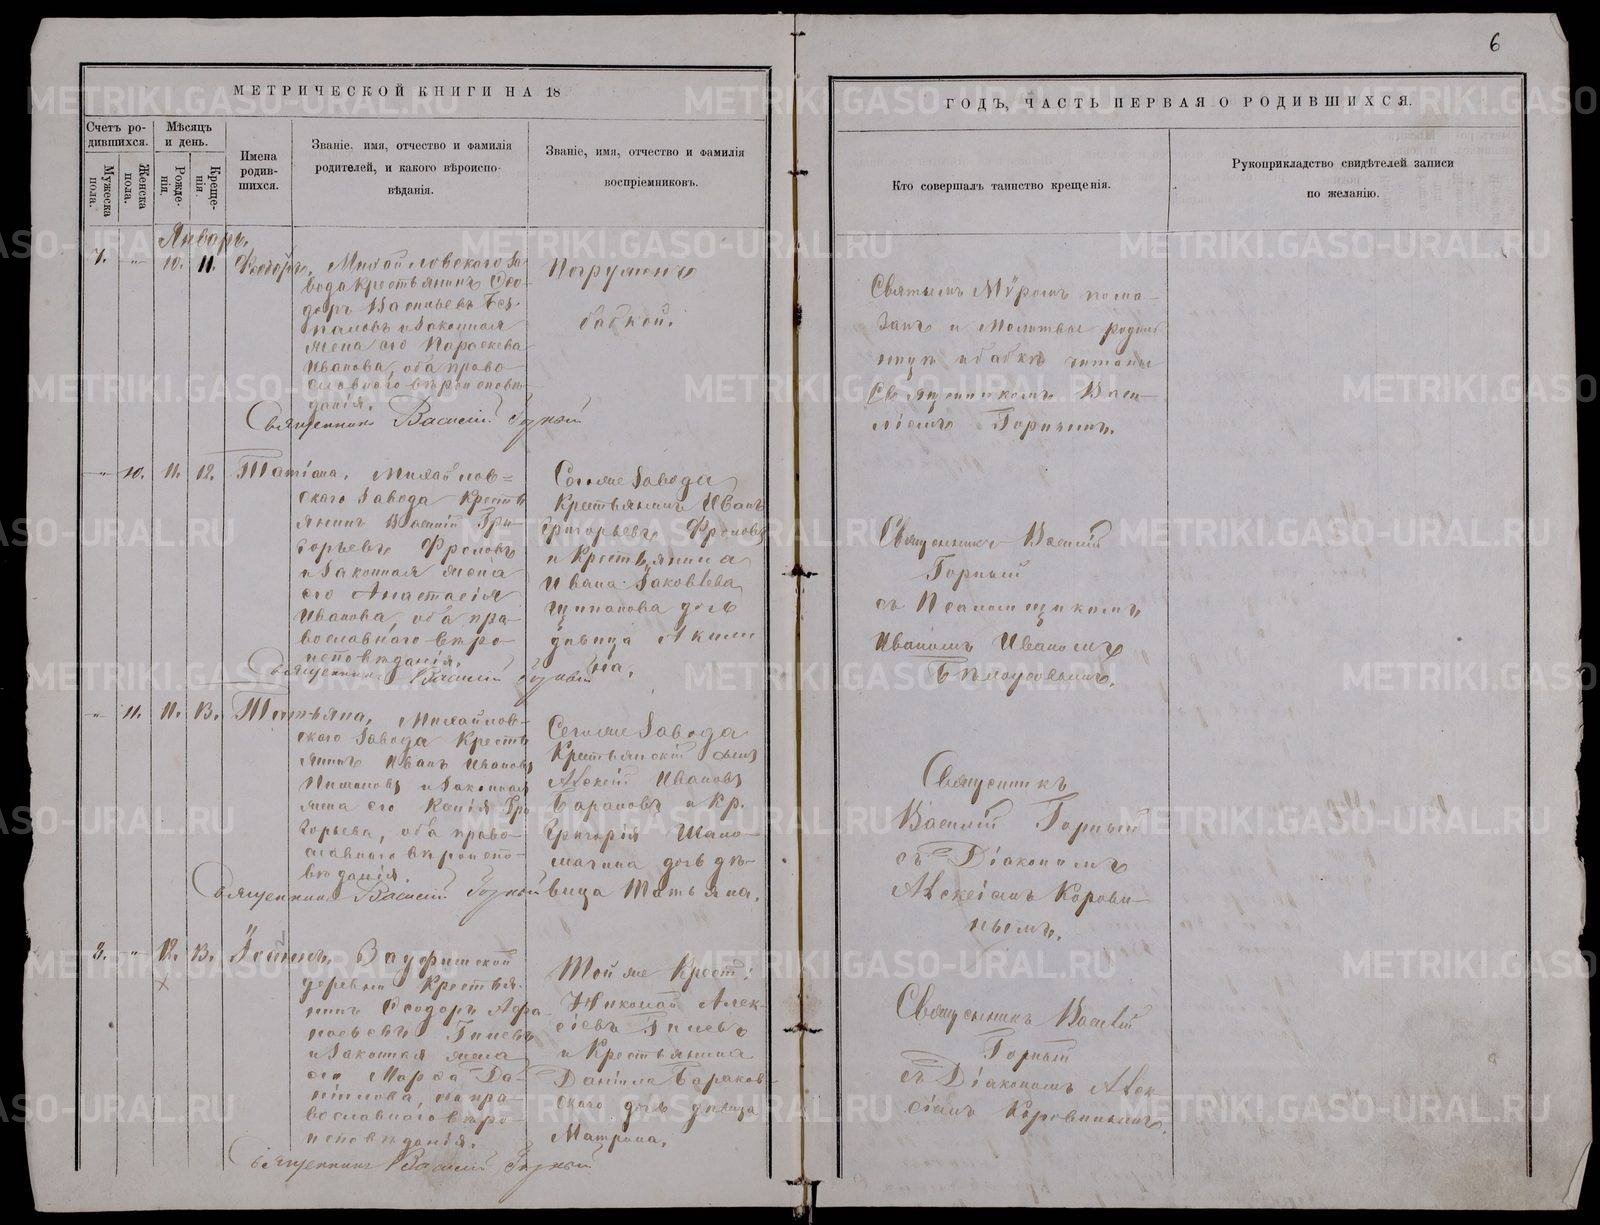 6
МЕТРИЧЕСКОЙ КНИГИ НА 18
ГОДЪ, ЧАСТЬ ПЕРВАЯ О РОДИВШИХСЯ.
Счетъ ро-
дившихся.
Мужеска
пола.
Женска
пола.
Мѣсяцъ
и день.
Рожде-
нія.
Креще-
нія.
Имена
родив-
шихся.
Званіе, имя, отчество и фамилія
родителей, и какого вѣроиспо-
вѣданія.
Званіе, имя, отчество и фамилія
воспріемниковъ.
Кто совершалъ таинство крещенія.
Рукоприкладство свидѣтелей записи
по желанію.
Январь.
7. " 10. 11.
Михайловскаго За-
вода крестьянинъ Ѳео-
доръ Васильевъ
и законная
жена его Параскева
Иванова, оба право-
славнаго вѣроисповѣ-
данія.
Священникъ Василій Горный
Погруженъ
бабкой.
Святымъ Мѵромъ пома-
занъ и Молитвы
и бабкѣ читаны
Священникомъ Васи-
ліемъ Горнымъ.
" 10. 11. 12.
Татіана. Михайлов-
скаго Завода Кресть
янинъ Василій Гри-
горьевъ Фроловъ
и Законная жена
его Анастасія
Иванова, оба пра-
вославнаго вѣро-
исповѣданія.
Священникъ Василій Горный
Завода
Крестьянинъ Иванъ
Григорьевъ Фроловъ
и Крестьянина
Ивана Яковлева
дочь
дѣвица Акили
на.
Священникъ Василій
Горный
съ Псаломщикомъ
Иваномъ Ивановымъ
" 11. 11. 13.
Татьяна. Михайлов-
скаго Завода Кресть
янинъ Иванъ Ивановъ
и Законная
жена его Ксенія Гри
горьева, оба право-
славнаго вѣроиспо-
вѣданія.
Священникъ Василій Горный
Сегоже Завода
Крестьянскій сынъ
Алексѣй Ивановъ
Барановъ и Кр.
Григорія Шало-
дочь дѣ-
вица Татьяна.
Священникъ
Василій Горный
съ Діакономъ
Алексіемъ Корови-
нымъ.
8. " 12. 13.
деревни Крестья-
нинъ Ѳеодоръ Афа-
насьевъ Гилевъ
и Законная жена
его Марѳа Да-
нилова, оба пра-
вославнаго вѣро-
исповѣданія.
Священникъ Василій Горный
Той же Крест:
Николай Алек-
сѣевъ Гилевъ
и Крестьянина
Даніила Бараков-
скаго дочь дѣвица
Матрона.
Священникъ Василій
Горный
съ Діакономъ Алек-
сіемъ Коровинымъ.
METRIKI.GASO-URAL.RU